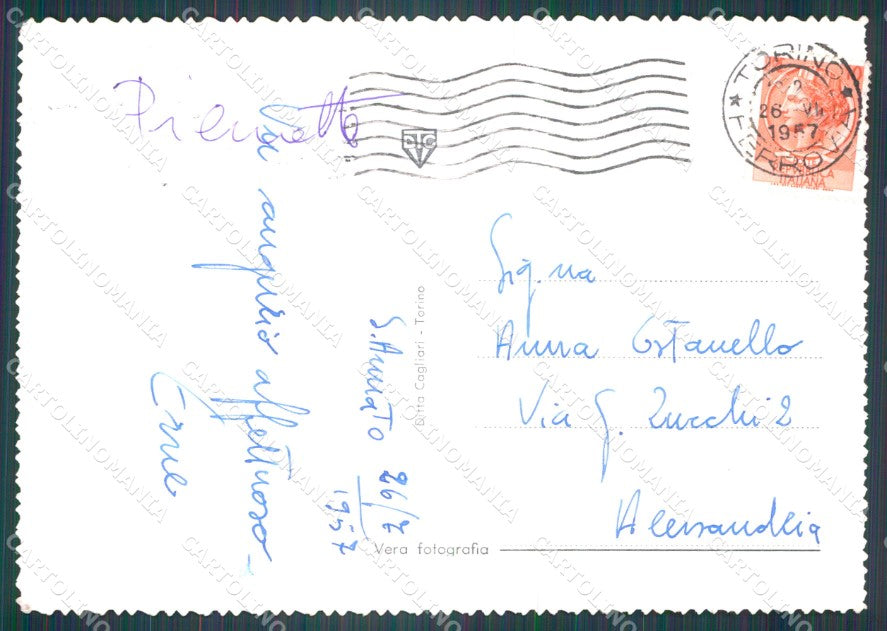 Pieretto
Un augurio affettuoso
S. Annato 26/7
1957
Ditta Cagliari - Torino
Vera fotografia
TORINO
26 VII
1957
FERROVIA
ITALIANA
Sig.na
Anna Ostanello
Via G. Zucchi 2
Alessandria
CARTOLINOMANIA